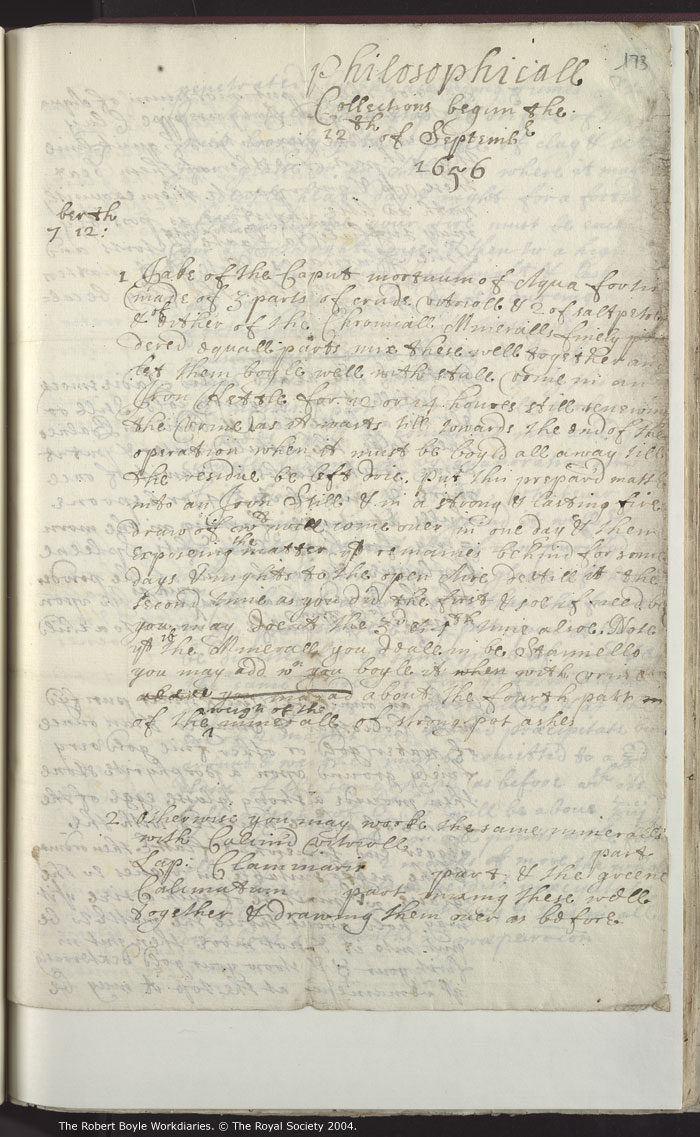 173
Philosophicall
Collections begun the
12th of Septembr
1656
berth
7 12:
1 Take of the Caput mortuum of Aqua fortis
(made of 3 parts of crude vitrioll & 2 of saltpeter
& of either of the Mineralls finely
dered equall parts mix these well together an
let them boyle well with stale Urine in an
Iron Kettle for 12 or 24 houres still renewing
the Urine as it wasts till towards the end of the
operation when it must be boyld all away till
the residue be left drie. Put this prepar'd matt
into an Iron Still & in a strong & lasting fire
draw of wt will come over in one day & then
exposing the matter yt remaines behind for some
days & nights to the open Aire destill it the
second time as you did the first & soe if need
you may doe it the 3d or 4th time alsoe. Note
yt if the Minerall you deale in be
you may add wn you boyle it when with urine
about the fourth part
of the weight of the minerall of strong pot ashes
2 Otherwise you may worke the same mineralls
with Calcin'd vitrioll part
Lap: Calaminaris part & the greene
part mixing these well
together & drawing them over as before
The Robert Boyle Workdiaries. © The Royal Society 2004.